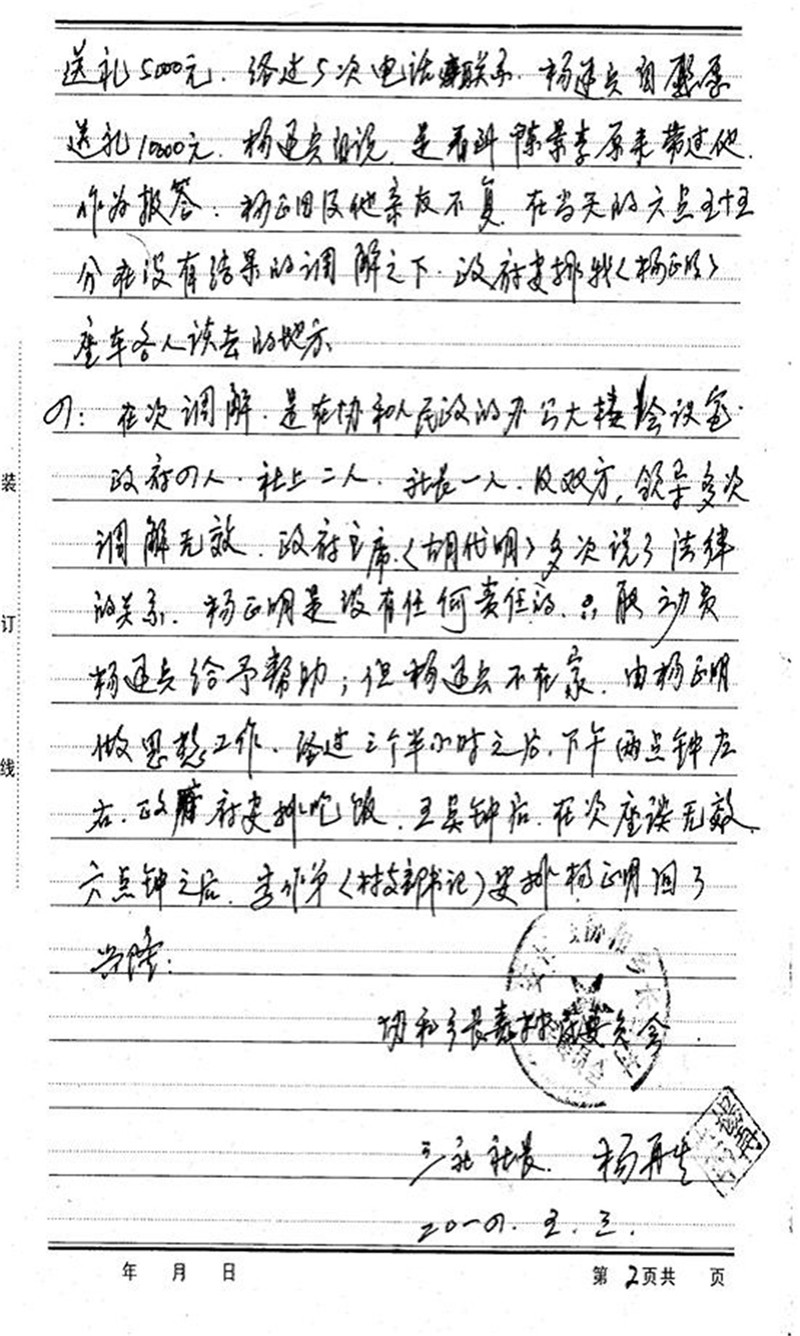 送礼5000元. 经过5次电话联系. 杨通兵自愿
送礼10000元. 杨通兵自说. 是看到陈景李原来带过他.
作为报答. 杨正明及他亲友不复. 在当天的六点五十五
分在没有结果的调解之下. 政府安排我《杨正明》
座车各人该去的地方.
四: 在次调解. 是在协和人民政的办公大楼会议室.
政府四人. 社上二人. 社长一人. 及双方, 领导多次
调解无效. 政府主席.《胡代明》多次说了法律
的关系. 杨正明是没有任何责任的. 只能动员
杨通兵给予帮助; 但杨通兵不在家. 由杨正明
做思想工作. 经过三个半小时之后. 下午两点钟左
右. 政府安排吃饭. 五点钟后. 在次座谈无效.
六点钟之后. 李作华《村支部书记》安排杨正明回了
兴隆:
协和乡长春村村委员会
三社社长. 杨再生
20一四. 五. 三.
装
订
线
年 月 日
第2页共 页